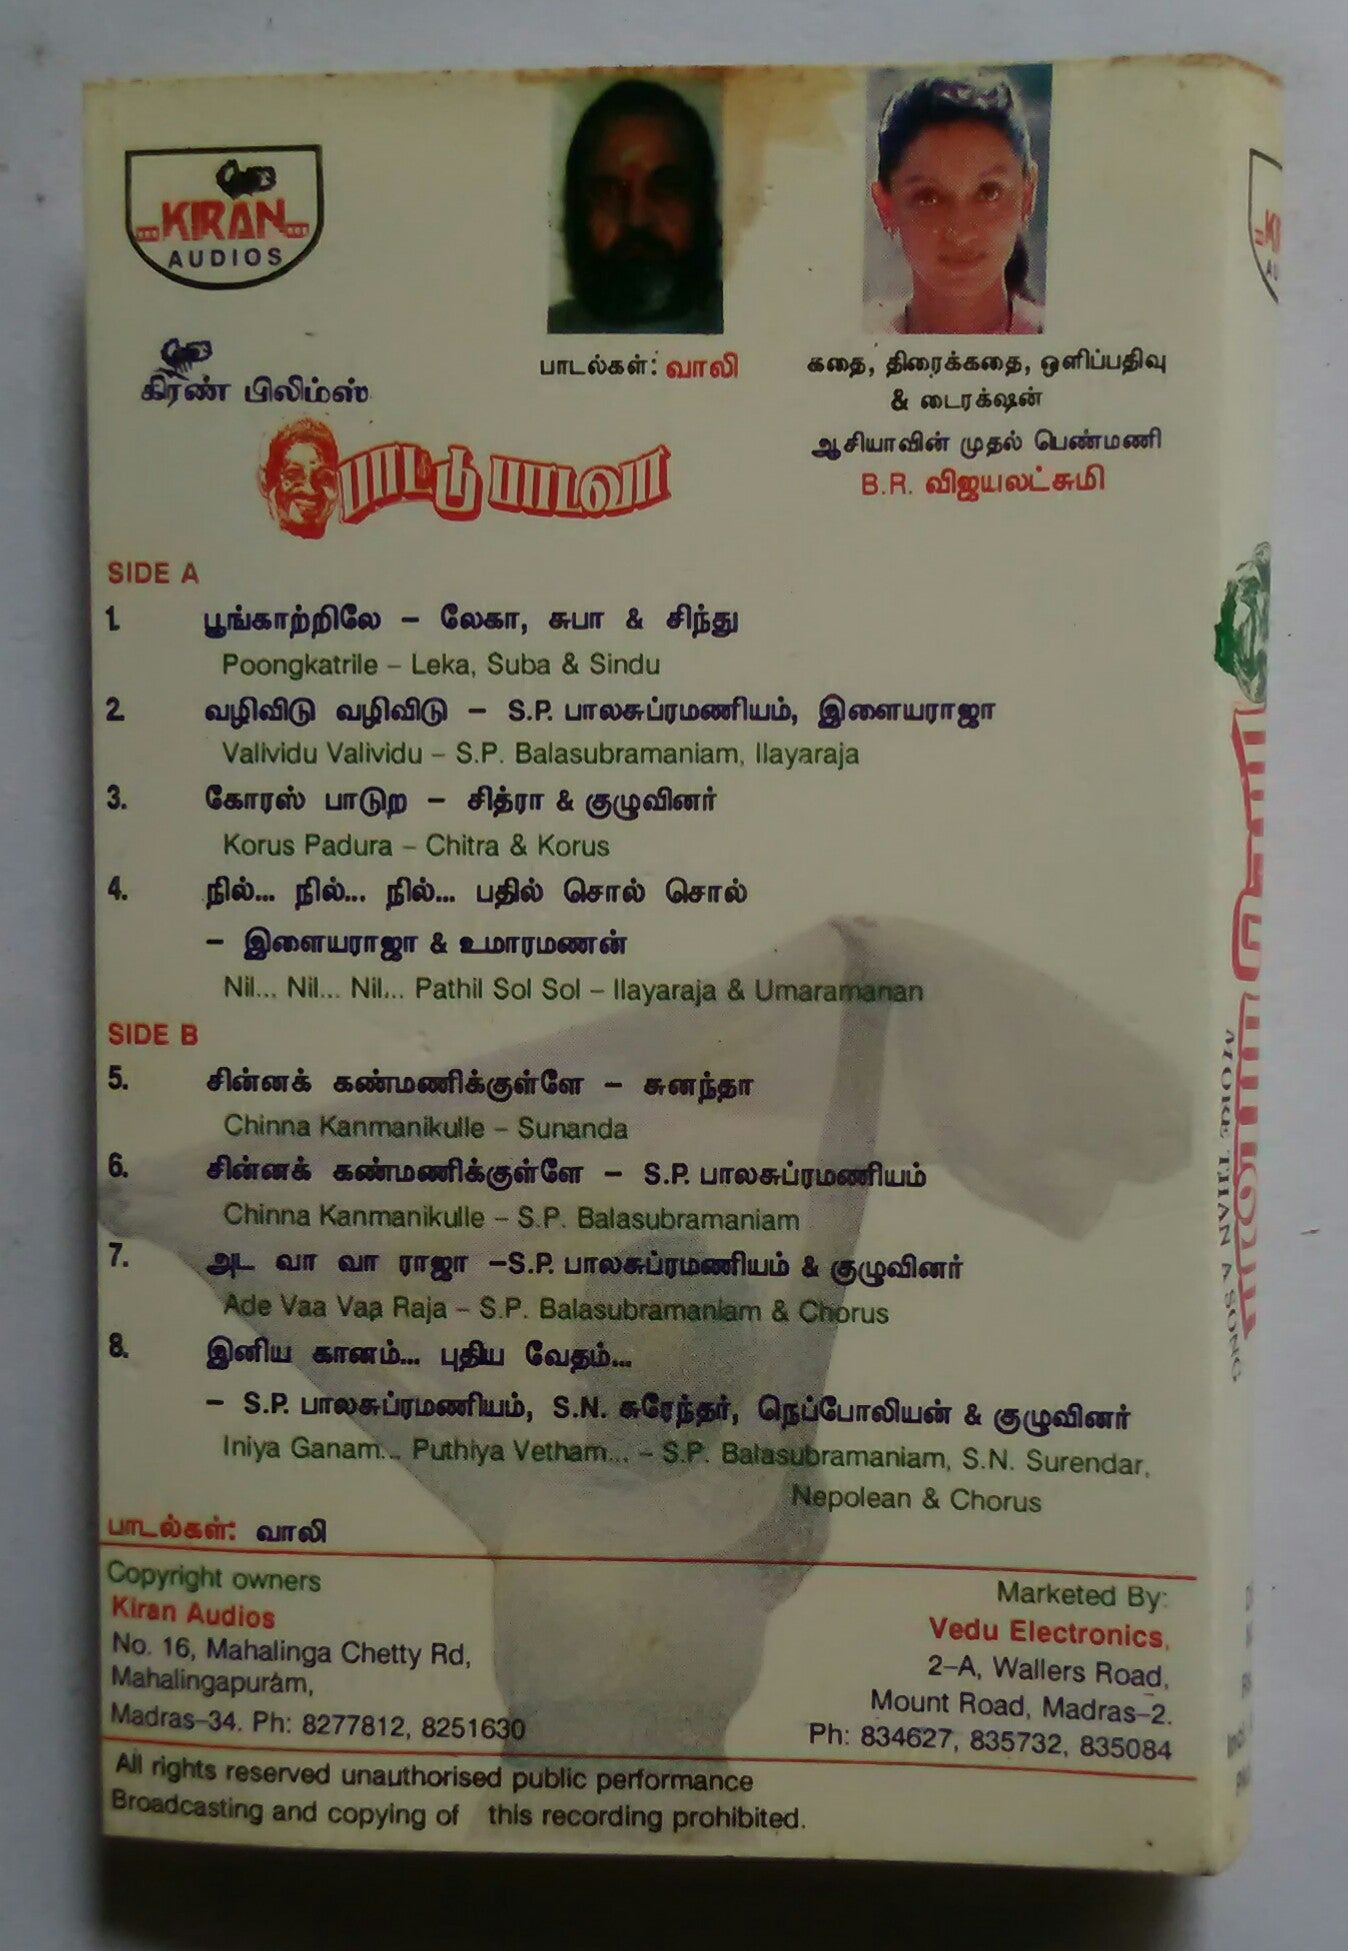 KIRAN
AUDIOS
பாடல்கள்: வாலி
கதை, திரைக்கதை, ஒளிப்பதிவு
& டைரக்‌ஷன்
ஆசியாவின் முதல் பெண்மணி
B.R. விஜயலட்சுமி
கிரண் பிலிம்ஸ்
பாட்டு பாடவா
SIDE A
1. பூங்காற்றிலே – லேகா, சுபா & சிந்து
Poongkatrile – Leka, Suba & Sindu
2. வழிவிடு வழிவிடு – S.P. பாலசுப்ரமணியம், இளையராஜா
Valividu Valividu – S.P. Balasubramaniam, Ilayaraja
3. கோரஸ் பாடுற – சித்ரா & குழுவினர்
Korus Padura – Chitra & Korus
4. நில்... நில்... நில்... பதில் சொல் சொல்
– இளையராஜா & உமாரமணன்
Nil... Nil... Nil... Pathil Sol Sol – Ilayaraja & Umaramanan
SIDE B
5. சின்னக் கண்மணிக்குள்ளே – சுனந்தா
Chinna Kanmanikulle – Sunanda
6. சின்னக் கண்மணிக்குள்ளே – S.P. பாலசுப்ரமணியம்
Chinna Kanmanikulle – S.P. Balasubramaniam
7. அட வா வா ராஜா –S.P. பாலசுப்ரமணியம் & குழுவினர்
Ade Vaa Vaa Raja – S.P. Balasubramaniam & Chorus
8. இனிய கானம்... புதிய வேதம்...
– S.P. பாலசுப்ரமணியம், S.N. சுரேந்தர், நெப்போலியன் & குழுவினர்
Iniya Ganam... Puthiya Vetham... – S.P. Balasubramaniam, S.N. Surendar,
Nepolean & Chorus
பாடல்கள்: வாலி
Copyright owners
Kiran Audios
No. 16, Mahalinga Chetty Rd,
Mahalingapuram,
Madras–34. Ph: 8277812, 8251630
Marketed By:
Vedu Electronics,
2–A, Wallers Road,
Mount Road, Madras–2.
Ph: 834627, 835732, 835084
All rights reserved unauthorised public performance
Broadcasting and copying of this recording prohibited.
MORE THAN A SONG